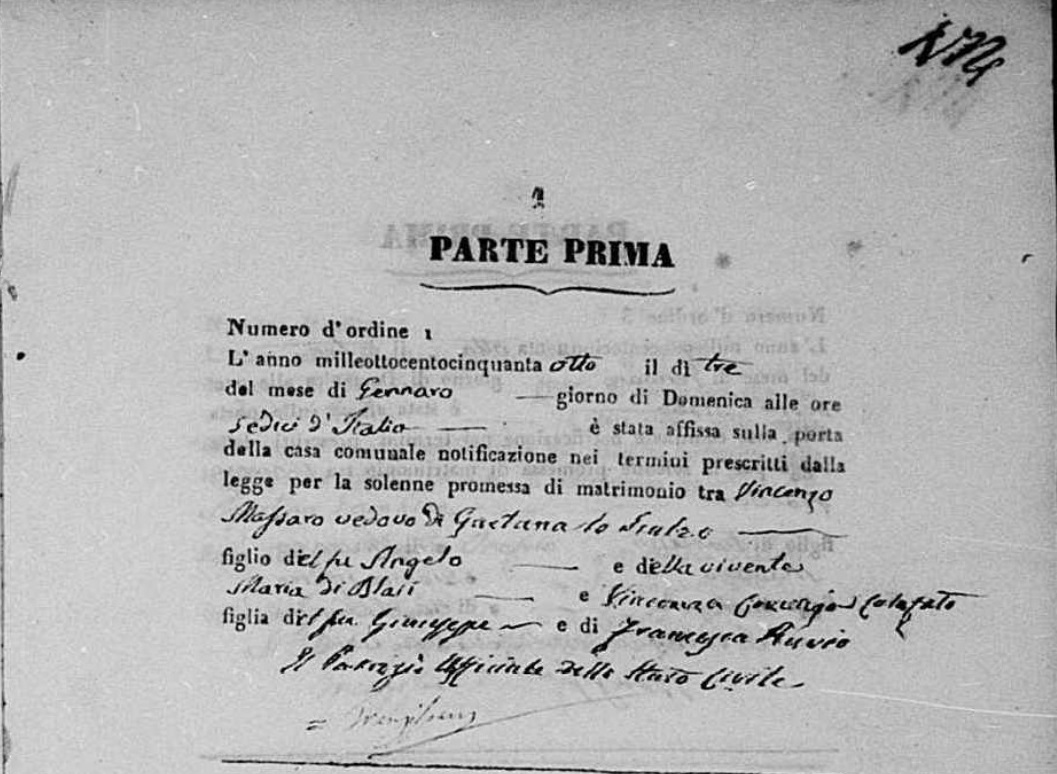 1
PARTE PRIMA
Numero d'ordine 1
L'anno milleottocentocinquanta otto il dì tre
del mese di Gennaro giorno di Domenica alle ore
sedici d'Italia è stata affissa sulla porta
della casa comunale notificazione nei termini prescritti dalla
legge per la solenne promessa di matrimonio tra Vincenzo
Massaro vedovo di Gaetana lo
figlio del fu Angelo e della vivente
Maria di Blasi e Vincenza Colajato
figlia del fu Giuseppe e di Francesca Ruvio
Il Patrizio Uffiziale dello Stato Civile